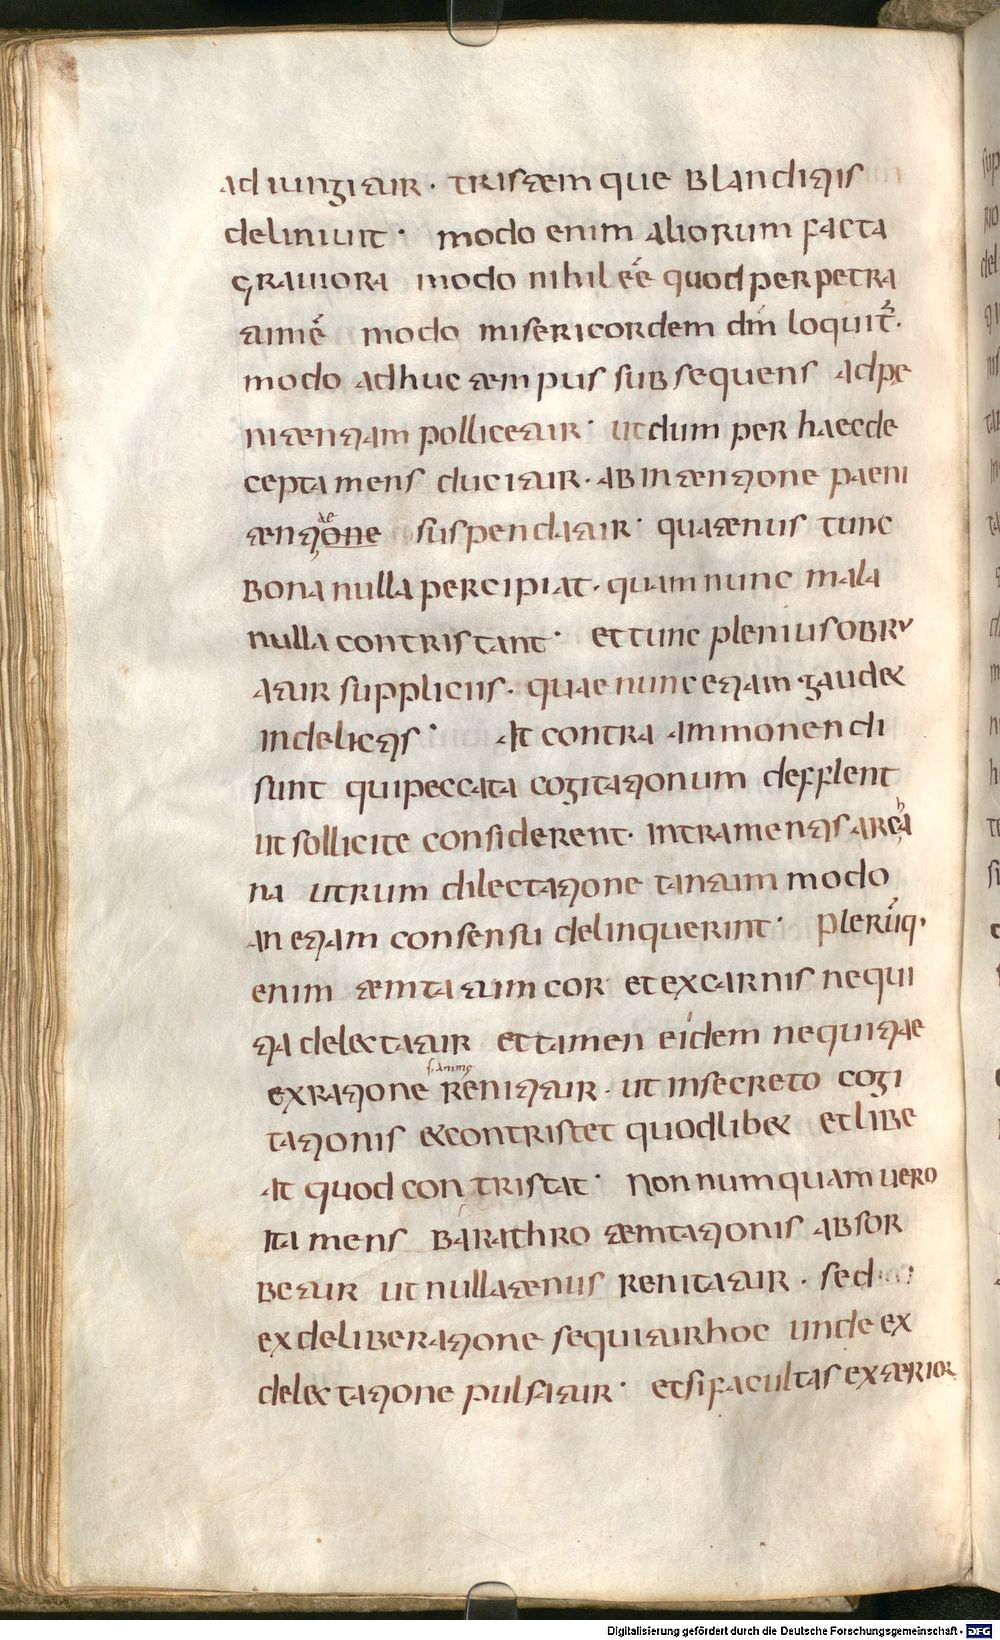 adiungitur· tristemque blanditiis
deliniuit· modo enim aliorum facta
grauiora modo nihil eē quod perpetra
tumē modo misericordem dm̄ loquit̄·
modo adhuc tempus subsequens adpe
nitentiam pollicetur· ut dum per haec de
cepta mens ducitur· ab intentione paeni
tentione ae suspendatur· quatenus tunc
bona nulla percipiat· quam nunc mala
nulla contristant· et tunc plenius obru
atur suppliciis· quae nunc etiam gaudet
in delictis· At contra ammonendi
sunt qui peccata cogitationum defflent
ut sollicite considerent· intra mentis archa
na utrum dilectatione tantum modo
an etiam consensu delinquerint· plerūq·
enim temtatum cor et ex carnis nequi
tia delectatur et tamen eidem nequitiae
ex ratione renititur· ut in secreto cogi
tationis et contristet quod libet et libe
at quod contristat· non numquam uero
ita mens barathro temtationis absor
betur ut nullatenus renitatur· sed
ex deliberatione sequitur hoc unde ex
delectatione pulsatur· et si facultas exterior
Digitalisierung gefördert durch die Deutsche Forschungsgemeinschaft - DFG